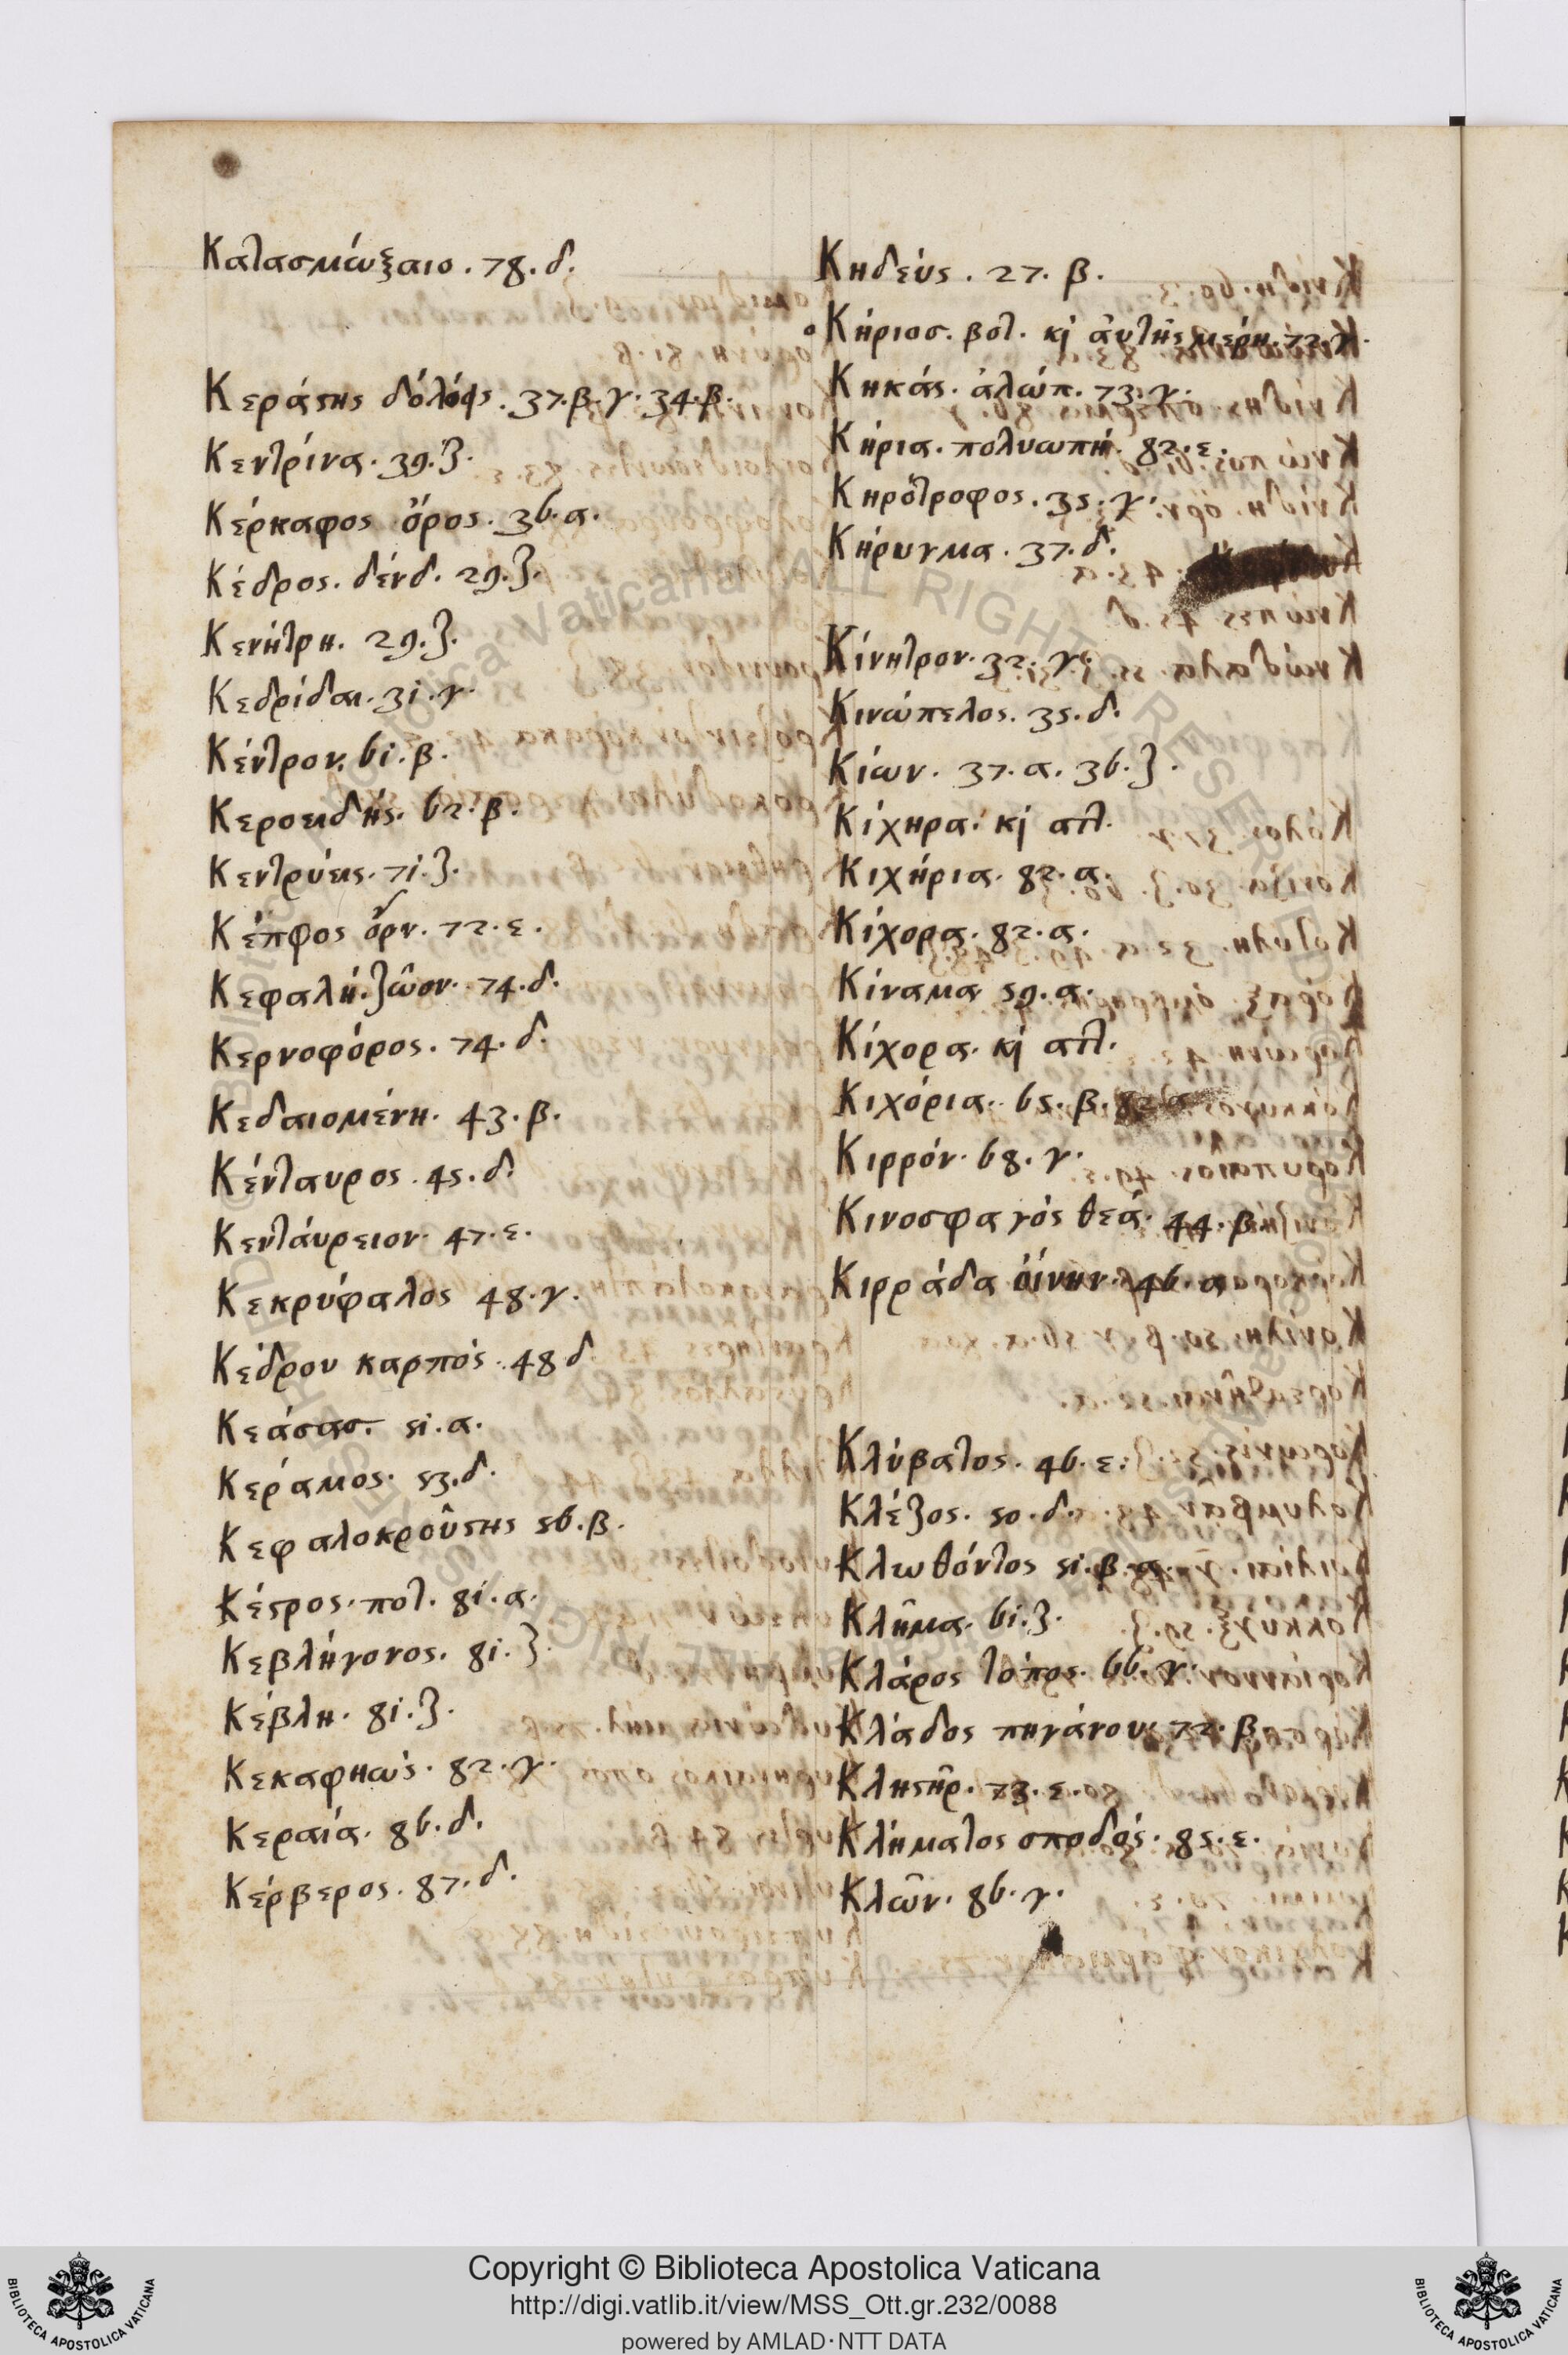 Κατασμώξαιο. 78. δ.
Κεράστης δόλοφς. 37. β. γ. 34. β.
Κεντρίνα. 39. ζ.
Κέρκαφος ὄρος. 36. α.
Κέδρος. δένδ. 29. ζ.
Κενήτρη. 29. ζ.
Κεδρίδαι. 31. γ.
Κέντρον. 61. β.
Κεροειδής. 62. β.
Κεντρύεις. 71. ζ.
Κέπφος ὄρν. 72. ε.
Κεφαλή. ζῶον. 74. δ.
Κερνοφόρος. 74. δ.
Κεδαιομένη. 43. β.
Κένταυρος. 45. δ.
Κενταύρειον. 47. ε.
Κεκρύφαλος 48. γ.
Κέδρου καρπός. 48 δ
Κεάσασ. 51. α.
Κέραμος. 53. δ.
Κεφαλοκρούστης 56. β.
Κέστρος. πολ. 81. α.
Κεβλήγονος. 81. ζ.
Κέβλη. 81. ζ.
Κεκαφηώς. 82. γ.
Κεραιά. 86. δ.
Κέρβερος. 87. δ.
Κηδεύς. 27. β.
Κήριοσ. βοτ. κϳ ἀυτῆς μέρη. 72. γ.
Κηκάς. ἀλώπ. 73. γ.
Κήρια. πολυωπή. 82. ε.
Κηρότροφος. 35. γ.
Κήρυγμα. 37. δ.
Κίνητρον. 32. γ.
Κινώπελος. 35. δ.
Κίων. 37. α. 36. ζ.
Κίχηρα. κϳ απλ.
Κιχήρια. 82. α.
Κίχορα. 82. α.
Κίναμα 59. α.
Κίχορα. κϳ απλ.
Κιχόρια. 65. β.
Κιρρόν. 68. γ.
Κινοσφαγός θεά. 44. β.
Κιρράδα οἴνην. 46. α
Κλύβατος. 46. ε.
Κλέζος. 50. δ.
Κλωθόντος 51. β. α.
Κλῆμα. 61. ζ.
Κλάρος τόπος. 66. γ.
Κλάδος πηγάνου. 72. β.
Κληστῆρ. 73. ε.
Κλήματος σποδός. 85. ε.
Κλῶν. 86. γ.
Copyright © Biblioteca Apostolica Vaticana
http://digi.vatlib.it/view/MSS_Ott.gr.232/0088
powered by AMLAD·NTT DATA
BIBLIOTECA APOSTOLICA VATICANA
BIBLIOTECA APOSTOLICA VATICANA